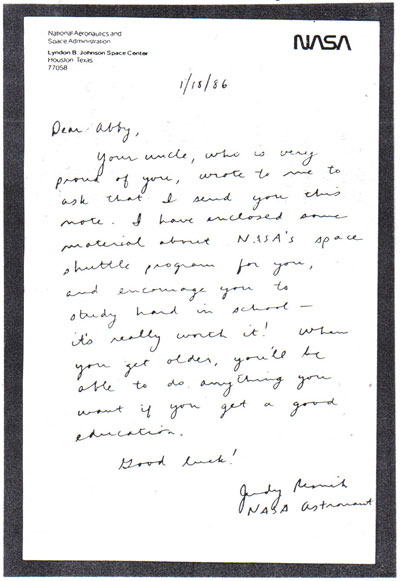 National Aeronautics and
Space Administration
Lyndon B. Johnson Space Center
Houston, Texas
77058
NASA
1/18/86
Dear Abby,
Your uncle, who is very
proud of you, wrote to me to
ask that I send you this
note. I have enclosed some
material about NASA's space
shuttle program for you,
and encourage you to
study hard in school –
it's really worth it! When
you get older, you'll be
able to do anything you
want if you get a good
education.
Good luck!
Judy Resnik
NASA Astronaut